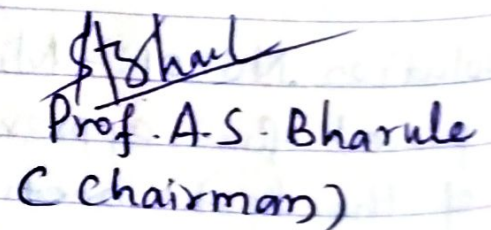 Prof. A.S. Bharule
(Chairman)